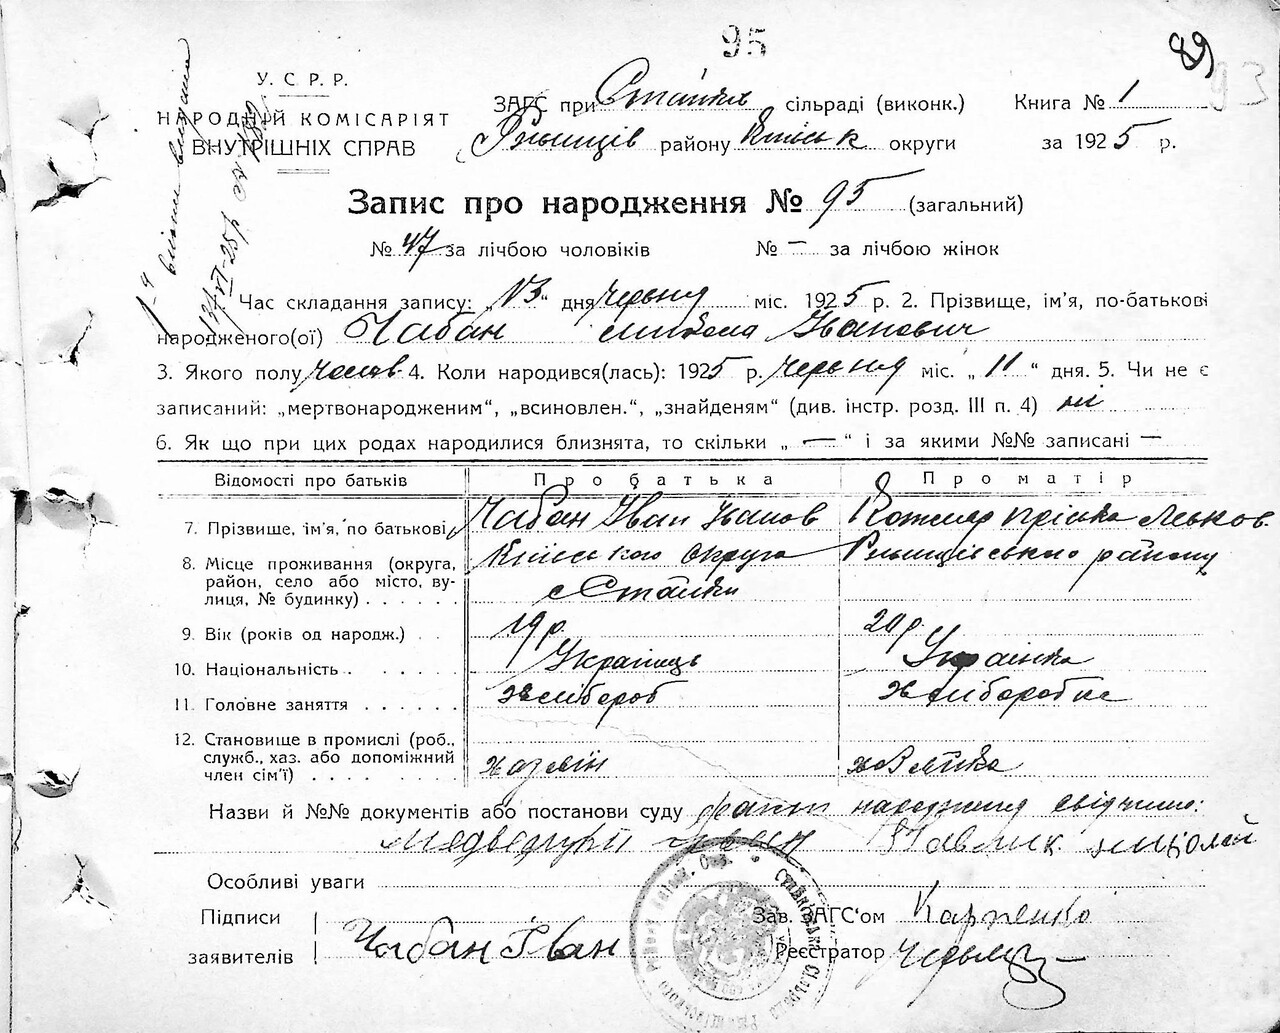 95
89
93
У. С. Р. Р.
НАРОДНІЙ КОМІСАРІЯТ
ВНУТРІШНІХ СПРАВ
ЗАГС при Стайки сільраді (виконк.) Книга № 1
Ржищів району Київськ округи за 1925 р.
Запис про народження № 95 (загальний)
№ 47 за лічбою чоловіків № — за лічбою жінок
Час складання запису: „13“ дня Червня міс. 1925 р. 2. Прізвище, ім’я, по-батькові
народженого(ої) Чабан Микола Іванович
3. Якого полу Чолов. 4. Коли народився(лась): 1925 р. Червня міс. „11“ дня. 5. Чи не є
записаний: „мертвонародженим“, „всиновлен.“, „знайденям“ (див. інстр. розд. III п. 4) ні
6. Як що при цих родах народилися близнята, то скільки „ — “ і за якими №№ записані —
Відомості про батьків Про батька Про матір
7. Прізвище, ім’я, по батькові Чабан Іван Іванов Пріська Леськов.
8. Місце проживання (округа, Київського округа Ржищівського району
район, село або місто, ву-
лиця, № будинку) . . . . . . с Стайки
9. Вік (років од народж.) . . 19 р. 20 р.
10. Національність . Українець Українка
11. Головне заняття . . . . . . Хлібороб Хліборобка
12. Становище в промислі (роб.,
служб., хаз. або допоміжний
член сім’ї) . . . . . . хазяїн
Назви й №№ документів або постанови суду факт народження свідчили:
Іван Павлик Миколай
Особливі уваги
Підписи Зав. ЗАГС‘ом Карпенко
заявителів Чабан Іван Реєстратор